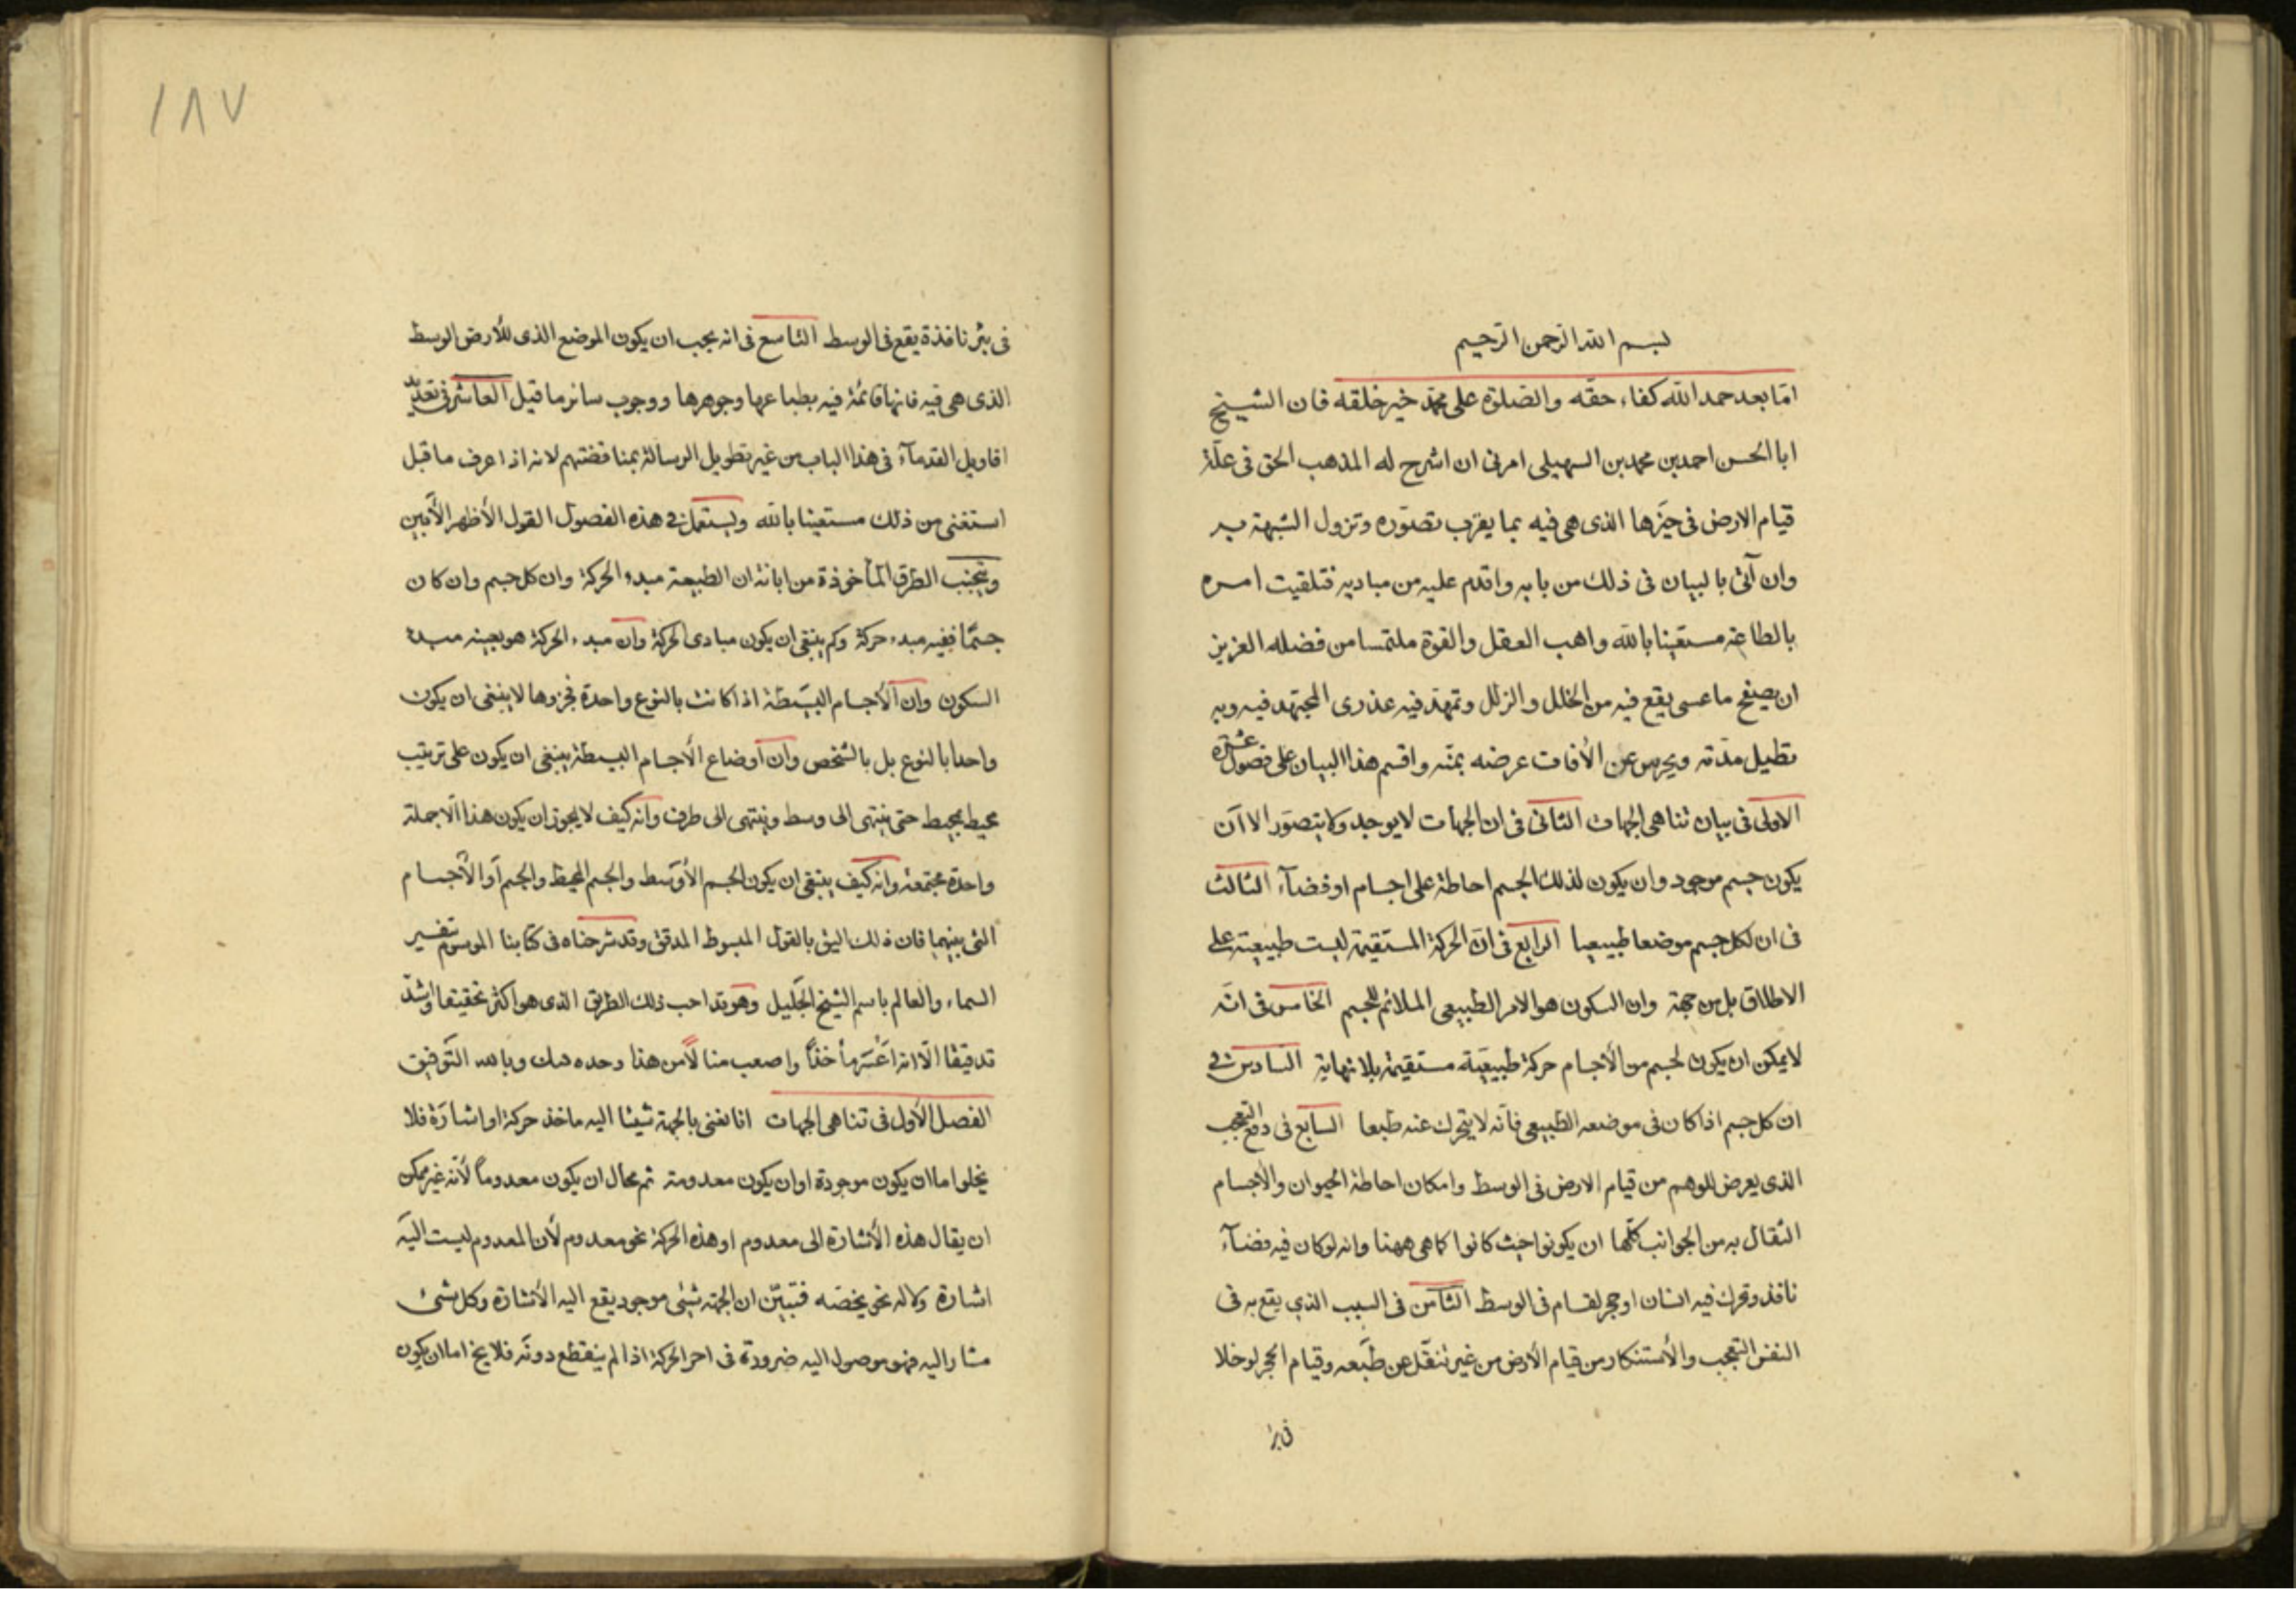 بسم الله الرحمن الرحيم
امّا بعد حمد الله كفاء حقّه والصّلوة على محمّد خير خلقه فان الشيخ
ابا الحسن احمد بن محمد بن السهيلى امرنى ان اشرح له المذهب الحق فى علّة
قيام الارض فى حيّزها الذى هى فيه بما يقرب تصوّره وتزول الشبهة به
وان آتى بالبيان فى ذلك من بابه واقدم عليه من مباديه فتلقيت امره
بالطاعة مستعينا بالله واهب العقل والقوة ملتمسا من فضله العزيز
ان يصفح ما عسى يقع فيه من الخلل والزلل وتمهّد فيه عذرى المجتهد فيه وبه
تطيل مدّته ويحرس عن الأفات عرضه بمنّه واقسم هذا البيان على فصول عشرة
الاولى فى بيان تناهى الجهات الثانى فى ان الجهات لا يوجد ولا يتصوّر الا ان
يكون جسم موجود وان يكون لذلك الجسم احاطة على اجسام او فضآء الثالث
فى ان لكل جسم موضعا طبيعيا الرابع فى انّ الحركة المستقيمة ليست طبيعية على
الاطلاق بل من جهة وان السكون هو الامر الطبيعى الملائم للجسم الخامس فى انّه
لا يمكن ان يكون لجسم من الأجسام حركة طبيعيّة مستقيمة بلا نهاية السادس فى
ان كل جسم اذا كان فى موضعه الطبيعى فانّه لا يتحرك عنه طبعا السابع فى دفع التعجب
الذى يعرض للوهم من قيام الارض فى الوسط وامكان احاطة الحيوان والأجسام
الثقال به من الجوانب كلّها ان يكونوا حيث كانوا كما هى ههنا وانه لو كان فيه فضآء
نافذ وتحرك فيه انسان او حجر لقام فى الوسط الثّامن فى السبب الذى يقع به فى
النفس التعجب والأستنكار من قيام الأرض من غير تنقّل عن طبعه وقيام الحجر لو خلا
فى بئر
١٨٧
فى بئر نافذة يقع فى الوسط التاسع فى انه يجب ان يكون الموضع الذى للأرض الوسط
الذى هى فيه فانها قائمة فيه بطباعها وجوهرها ووجوب سائر ما قيل العاشر فى تعديد
اقاويل القدمآء فى هذا الباب من غير تطويل الرسالة بمناقضتهم لانه اذا عرف ما قبل
استغنى من ذلك مستعينا بالله ويستعمل فى هذه الفصول القول الأظهر الأبين
ويتجنب الطرق المأخوذة من ابانة ان الطبيعة مبدء الحركة وان كل جسم وان كان
جسمًا ففيه مبدء حركة وكم ينبغى ان يكون مبادى الحركة وان مبدء الحركة هو بعينه مبدء
السكون وان الأجسام البسيطة اذا كانت بالنوع واحدة فجزوها لا ينبغى ان يكون
واحدا بالنوع بل بالشخص وان اوضاع الأجسام البسيطة ينبغى ان يكون على ترتيب
محيط بمحيط حتى ينتهى الى وسط وينتهى الى طرف وانه كيف لا يجوز ان يكون هذا الّا جملة
واحدة مجتمعة وانه كيف ينبغى ان يكون الجسم الأوسط والجسم المحيط والجسم أو الأجسام
التى بينهما فان ذلك اليق بالقول المبسوط المدقق وقد شرحناه فى كتابنا الموسوم تفسير
السماء والعالم باسم الشيخ الجليل وهو قد احب ذلك الطريق الذى هو اكثر تحقيقا واشدّ
تدقيقا الّا انه اعسر مأخذًا واصعب منالًا من هذا وحده وبالله التوفيق
الفصل الأوّل فى تناهى الجهات انا نعنى بالجهة شيئا اليه ماخذ حركة او اشارة فلا
يخلو اما ان يكون موجودة او ان يكون معدومة ثم محال ان يكون معدوماً لأنّه غير ممكن
ان يقال هذه الأشارة الى معدوم او هذه الحركة نحو معدوم لأن المعدوم ليست اليه
اشارة ولا له نحو يخصّه فتبيّن ان الجهة شيئى موجود يقع اليه الأشارة وكل شىء
مشار اليه فهو موصول اليه ضرورة فى اخر الحركة اذا لم ينقطع دونه فلا يخ اما ان يكون